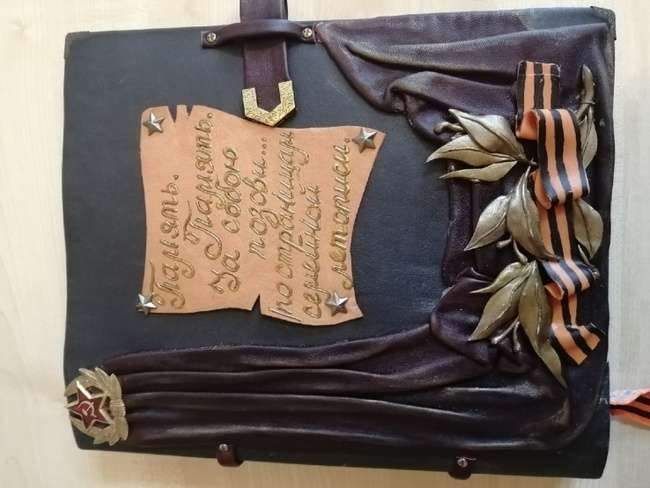 Память.
Память.
За собою
позови...
по страницам
семейной
летописи.